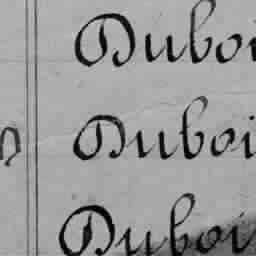 Duboi
Duboi
Duboi